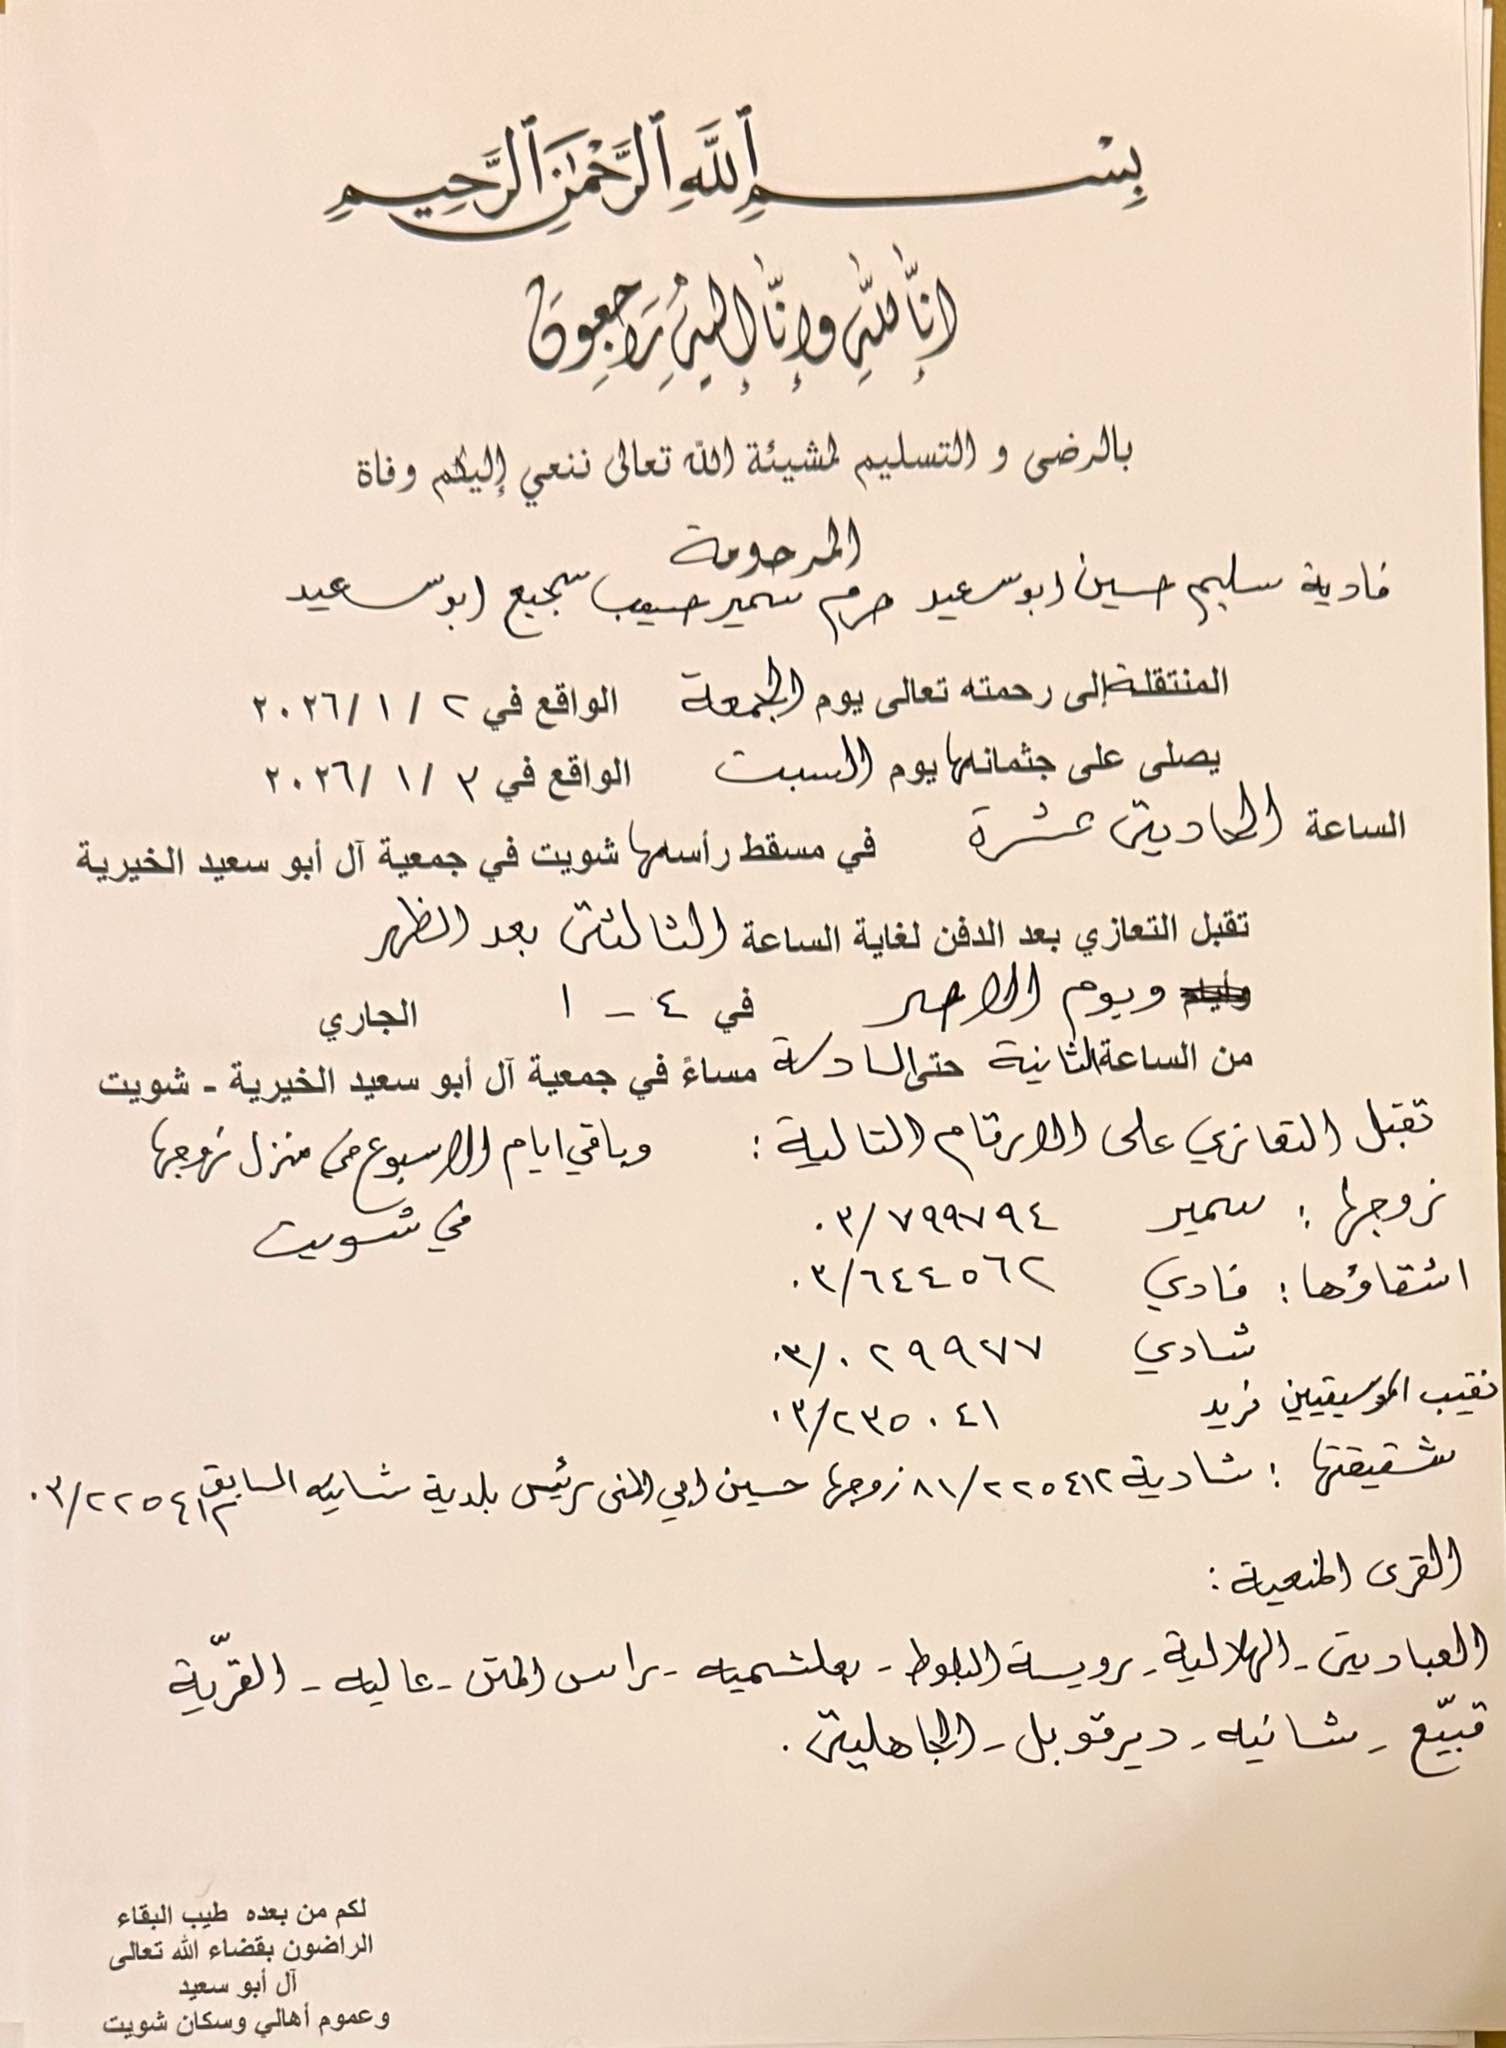 بِسْمِ ٱللَّهِ ٱلرَّحْمَٰنِ ٱلرَّحِيمِ
إنَّا لِلَّهِ وإنَّا إليْهِ رَاجِعِونَ
بالرضى و التسليم لمشيئة الله تعالى ننعي إليكم وفاة
المرحومة
فادية سليم حسين ابو سعيد حرم سمير حسيب سجيع ابو سعيد
المنتقلة إلى رحمته تعالى يوم الجمعة الواقع في ٢ / ١ /٢٠٢٦
يصلى على جثمانها يوم السبت الواقع في ٣ / ١ /٢٠٢٦
الساعة الحادية عشرة في مسقط رأسها شويت في جمعية آل أبو سعيد الخيرية
تقبل التعازي بعد الدفن لغاية الساعة الثالثة بعد الظهر
ويوم الاحد في ٤ - ١ الجاري
من الساعة الثانية حتى السادسة مساءً في جمعية آل أبو سعيد الخيرية - شويت
تقبل التعازي على الارقام التالية : وباقي ايام الاسبوع في منزل زوجها
في شويت
زوجها : سمير ٠٣/٧٩٩٧٩٤
اشقاؤها : فادي ٠٣/٦٤٤٥٦٢
شادي ٠٣/٠٢٩٩٧٧
نقيب الموسيقيين فريد ٠٣/٢٣٥٠٤١
شقيقتها : شادية ٨١/٢٢٥٤١٢ زوجها حسين ابي المنى رئيس بلدية شانيه السابق ٠٣/٢٢٥٤١٣
القرى المنعية :
العبادية - الهلالية - رويسة البلوط - بعلشميه - راس المتن - عاليه - القريّة
قبيّع - شانيه - ديرقوبل - الجاهلية .
لكم من بعده طيب البقاء
الراضون بقضاء الله تعالى
آل أبو سعيد
وعموم أهالي وسكان شويت